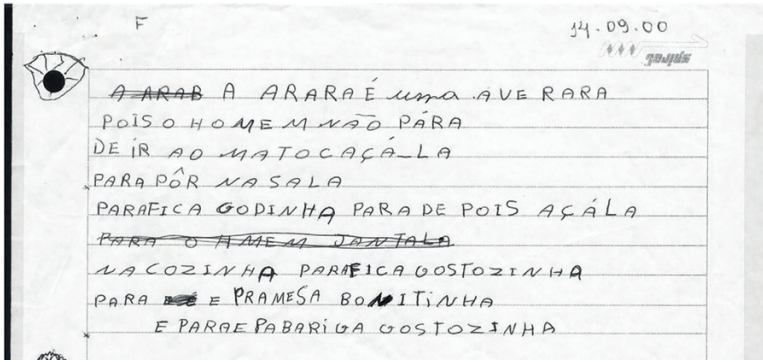 F
14.09.00
A ARAB A ARARA É uma AVE RARA
POIS O HOMEM NÃO PÁRA
DE IR AO MATO CAÇÁ-LA
PARA PÔR NA SALA
PARA FICA GODINHA PARA DE POIS AÇÁLA
PARA O AMEM JANTALA
NA COZINHA PARA FICA GOSTOZINHA
PARA E PRAMESA BONITINHA
E PARAE PABARIGA GOSTOZINHA